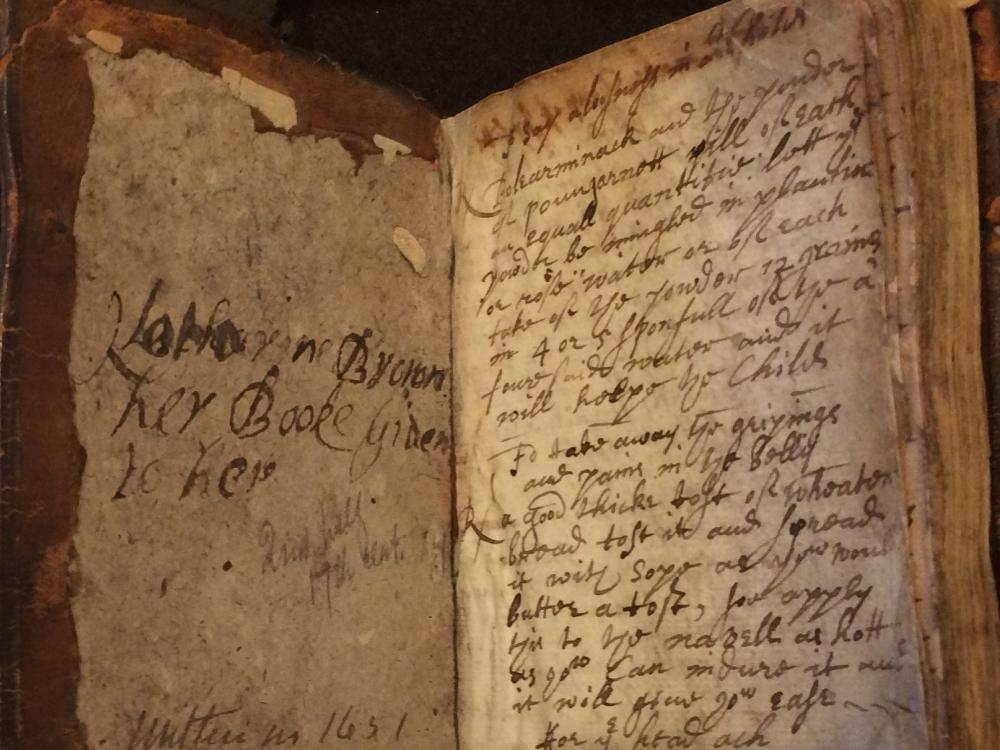 Katherine Brown
her Booke Given
to her
17th Cent.
in 1651
To stay a loosness in a Child
℞ Bolearminack and the powder
of poungarnett pill of each
an equall quantitie: lett ye
powder be mingled in plantin
or rose water or of each
take of the powder 12 graines
in 4 or 5 sponfull of the a
fore said water and it
will helpe the Child
To take away the gripings
and pains in the belly
℞ a good thicke tost of wheaten
bread tost it and spread
it with sope as yow woul
butter a tost, soe apply
this to the navell as hott
as yow Can indure it and
it will give yow ease
For ye head ach